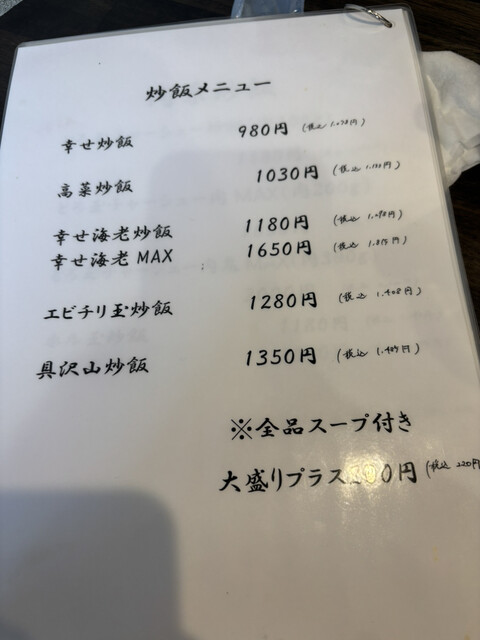 炒飯メニュー
幸せ炒飯 980円 (税込 1,078円)
高菜炒飯 1030円 (税込 1,133円)
幸せ海老炒飯 1180円 (税込 1,298円)
幸せ海老 MAX 1650円 (税込 1,815円)
エビチリ玉炒飯 1280円 (税込 1,408円)
具沢山炒飯 1350円 (税込 1,485円)
※全品スープ付き
大盛りプラス200円 (税込 220円